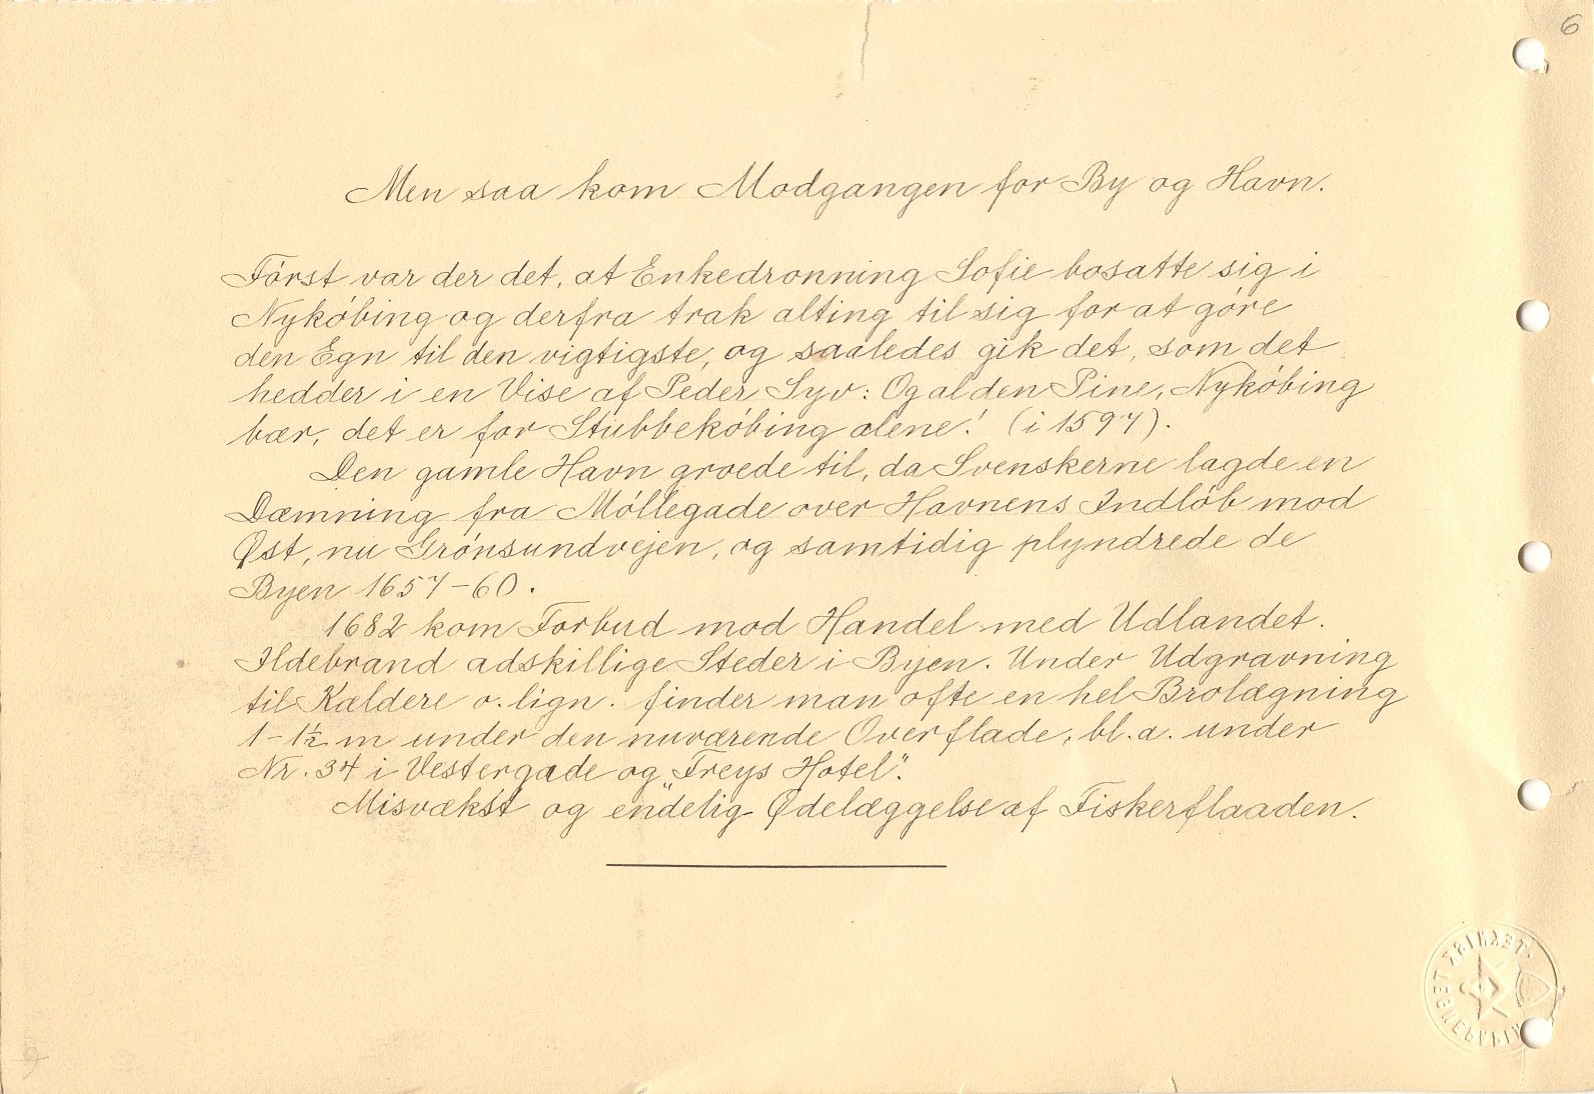 6
Men saa kom Modgangen for By og Havn.
Först var der det, at Enkedronning Sofie bosatte sig i
Nyköbing og derfra trak alting til sig for at göre
den Egn til den vigtigste, og saaledes gik det, som det
hedder i en Vise af Peder Syv: Og al den Pine, Nyköbing
bær, det er for Stubbeköbing alene! (i 1597).
Den gamle Havn groede til, da Svenskerne lagde en
Dæmning fra Möllegade over Havnens Indlöb mod
Øst, nu Grönsundvejen, og samtidig plyndrede de
Byen 1657-60.
1682 kom Forbud mod Handel med Udlandet.
Ildebrand adskillige Steder i Byen. Under Udgravning
til Kældere o. lign. finder man ofte en hel Brolægning
1-1½ m under den nuværende Overflade, bl. a. under
Nr. 34 i Vestergade og „Freys Hotel".
Misvækst og endelig Ødelæggelse af Fiskerflaaden.